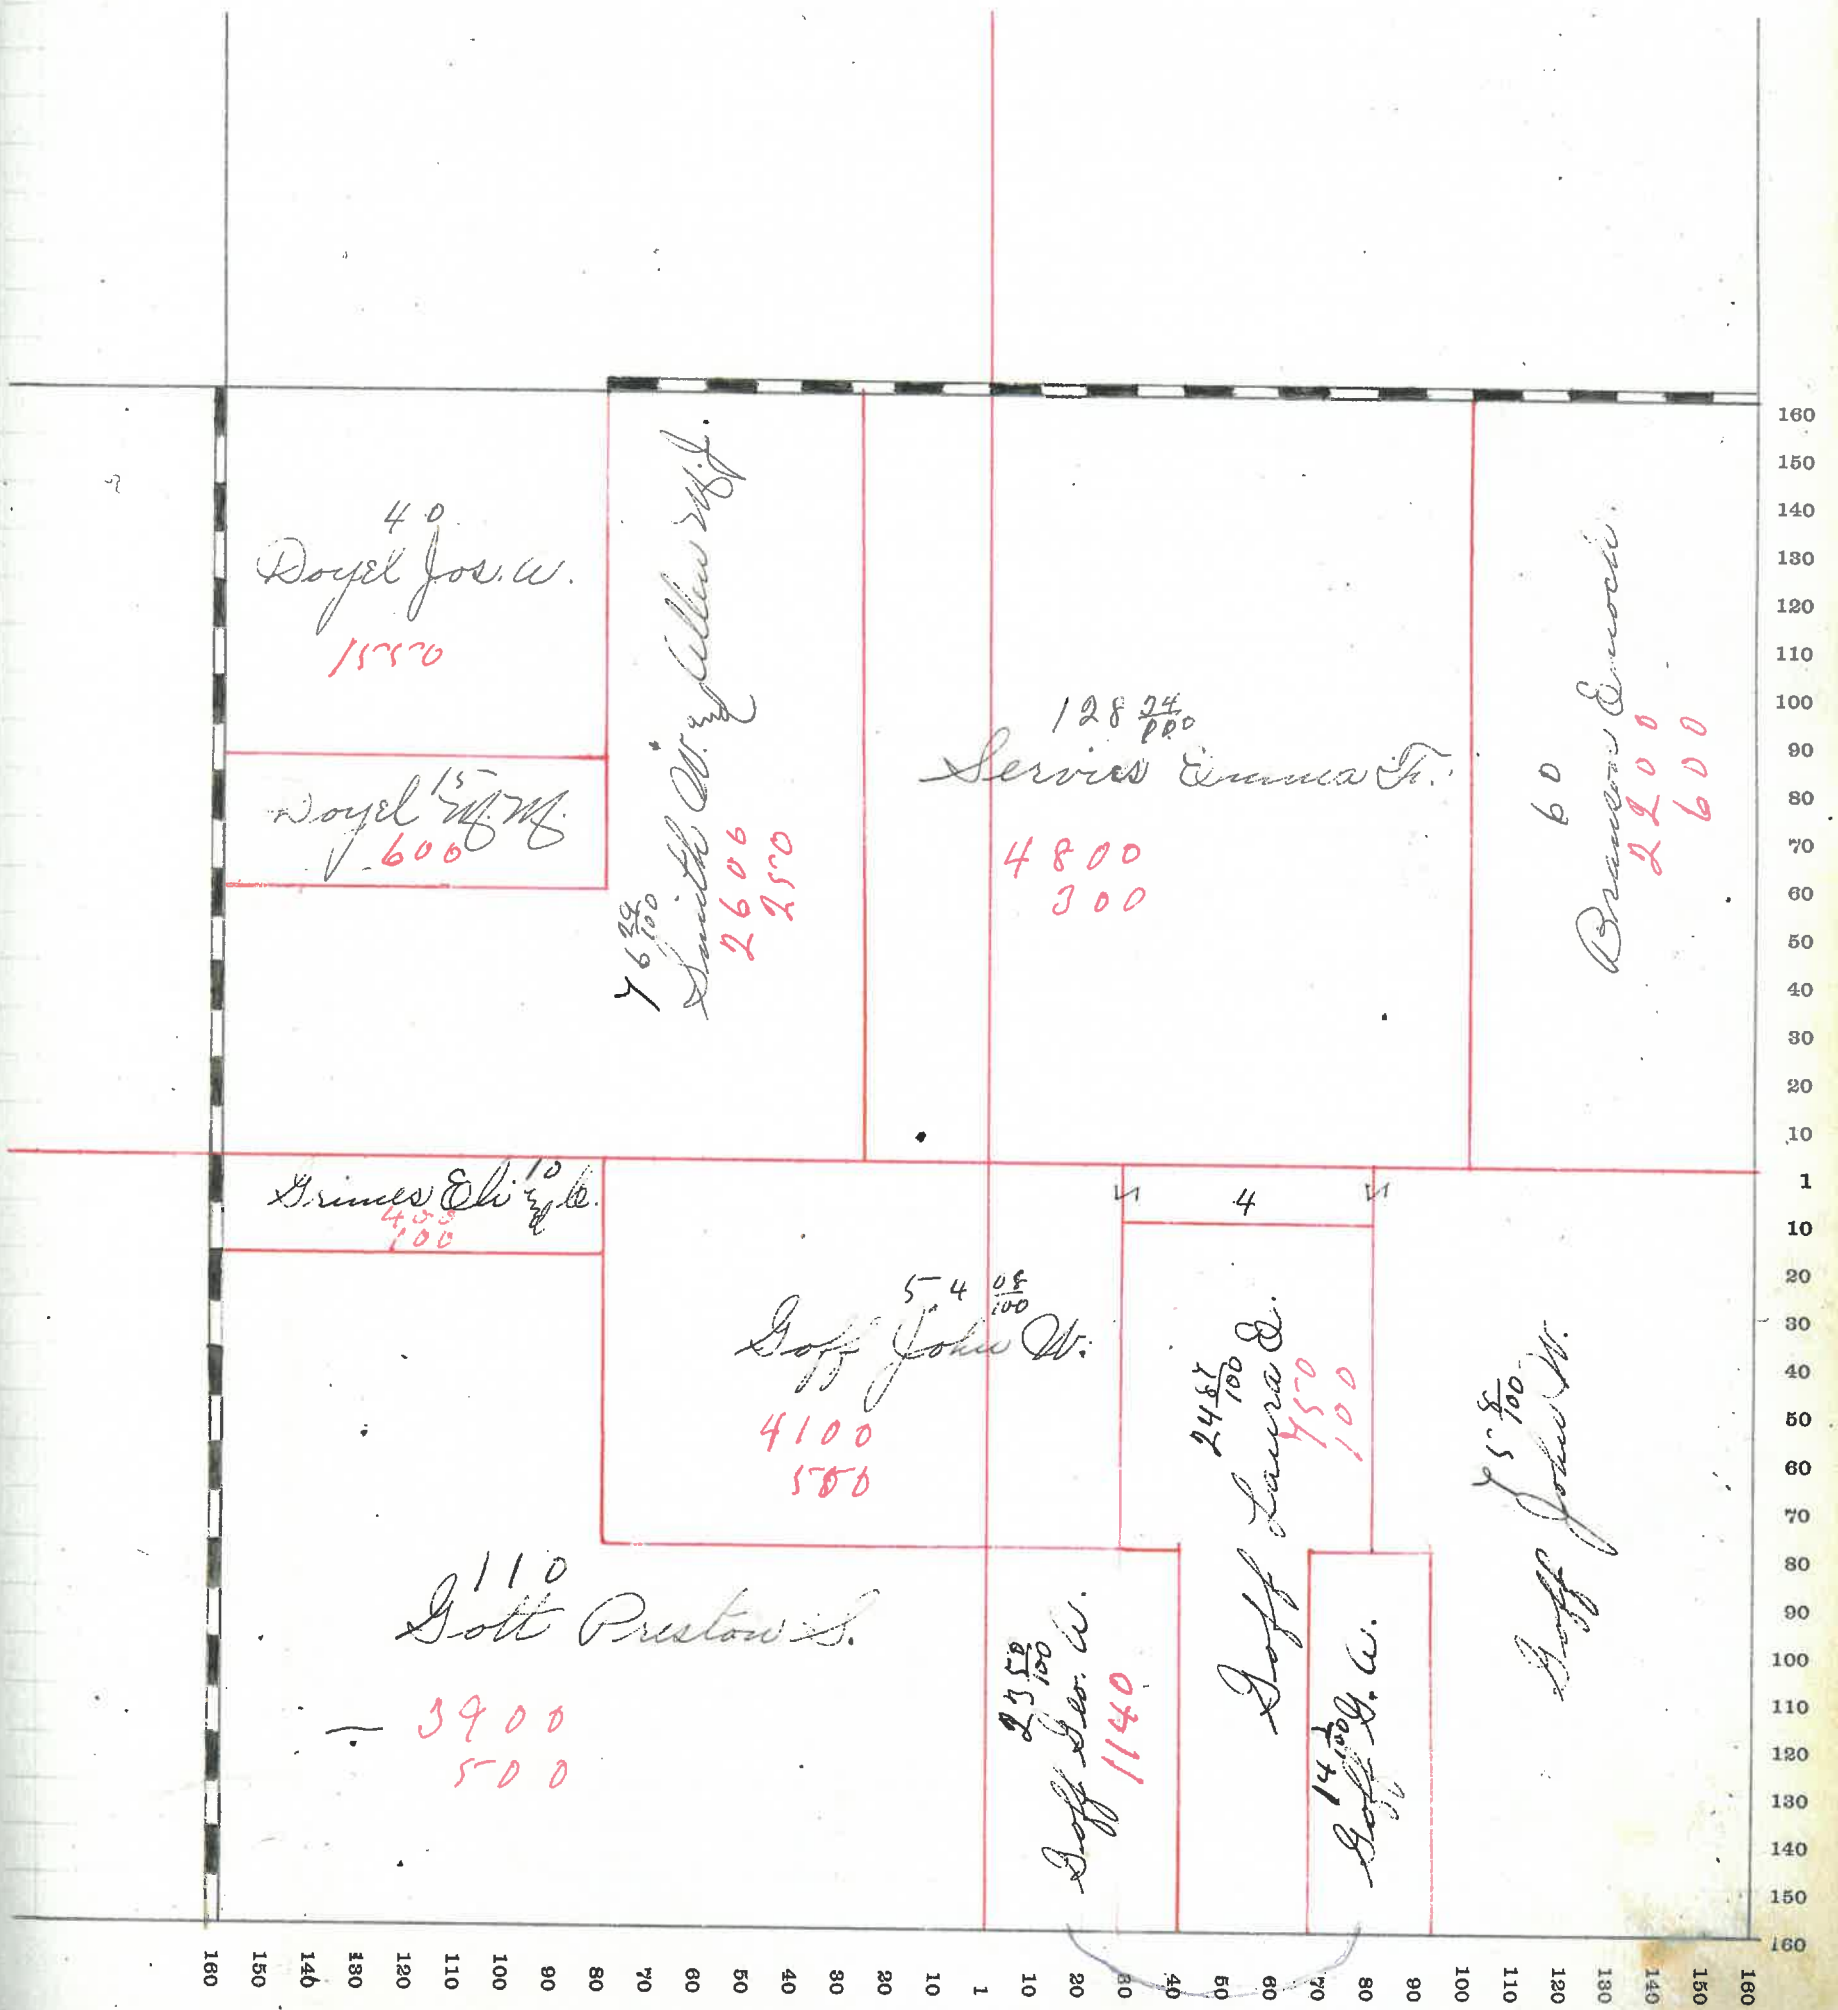 40
Doyel Jos. W.
1550
15
Doyel M. M.
600
76 24/100
Smith W. & Allen M. J.
2600
250
128 24/100
Servies Emma F.
4800
300
60
Branson Enoch.
2200
600
10
Grimes Eli & C.
400
100
54 08/100
Goff John W.
4100
500
4
24 67/100
Goff Laura E.
750
100
75 8/100
Goff John W.
110
Gott Preston S.
3900
500
23 50/100
Goff Geo. W.
1140
14 1/100
Goff G. W.
160
150
140
130
120
110
100
90
80
70
60
50
40
30
20
10
1
10
20
30
40
50
60
70
80
90
100
110
120
130
140
150
160
160
150
140
130
120
110
100
90
80
70
60
50
40
30
20
10
1
10
20
30
40
50
60
70
80
90
100
110
120
130
140
150
160